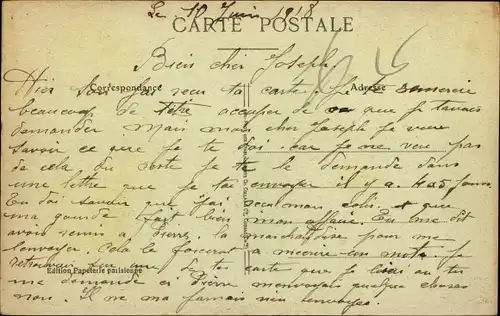 Le 10 Juin 1918
CARTE POSTALE
Bien cher Joseph
Correspondance
Adresse
Hier soir j'ai reçu ta carte. Je te remercie
beaucoup de t'être occuper de ce que je t'avais
demander Mais mon cher Joseph je veux
savoir ce que je te dois. car je ne veu pas
de cela. Du reste je te le demande dans
une lettre que je t'ai envoyer il y a 4 a 5 jours
Tu dois savoir que j'ai reçu mon colis. et que
ma gourde fait bien mon affaire. Tu me dit
avoir remis a Pierre la marchandise pour me
l'envoyer. Cela le forcerat a m'ecrire un mot. Je
retrouvais sur une de tes carte que je lisai ou tu
me demande si Pierre m'envoyais quelque choses
non. Il ne ma jamais rien envoyer.
Edition Papeterie parisienne